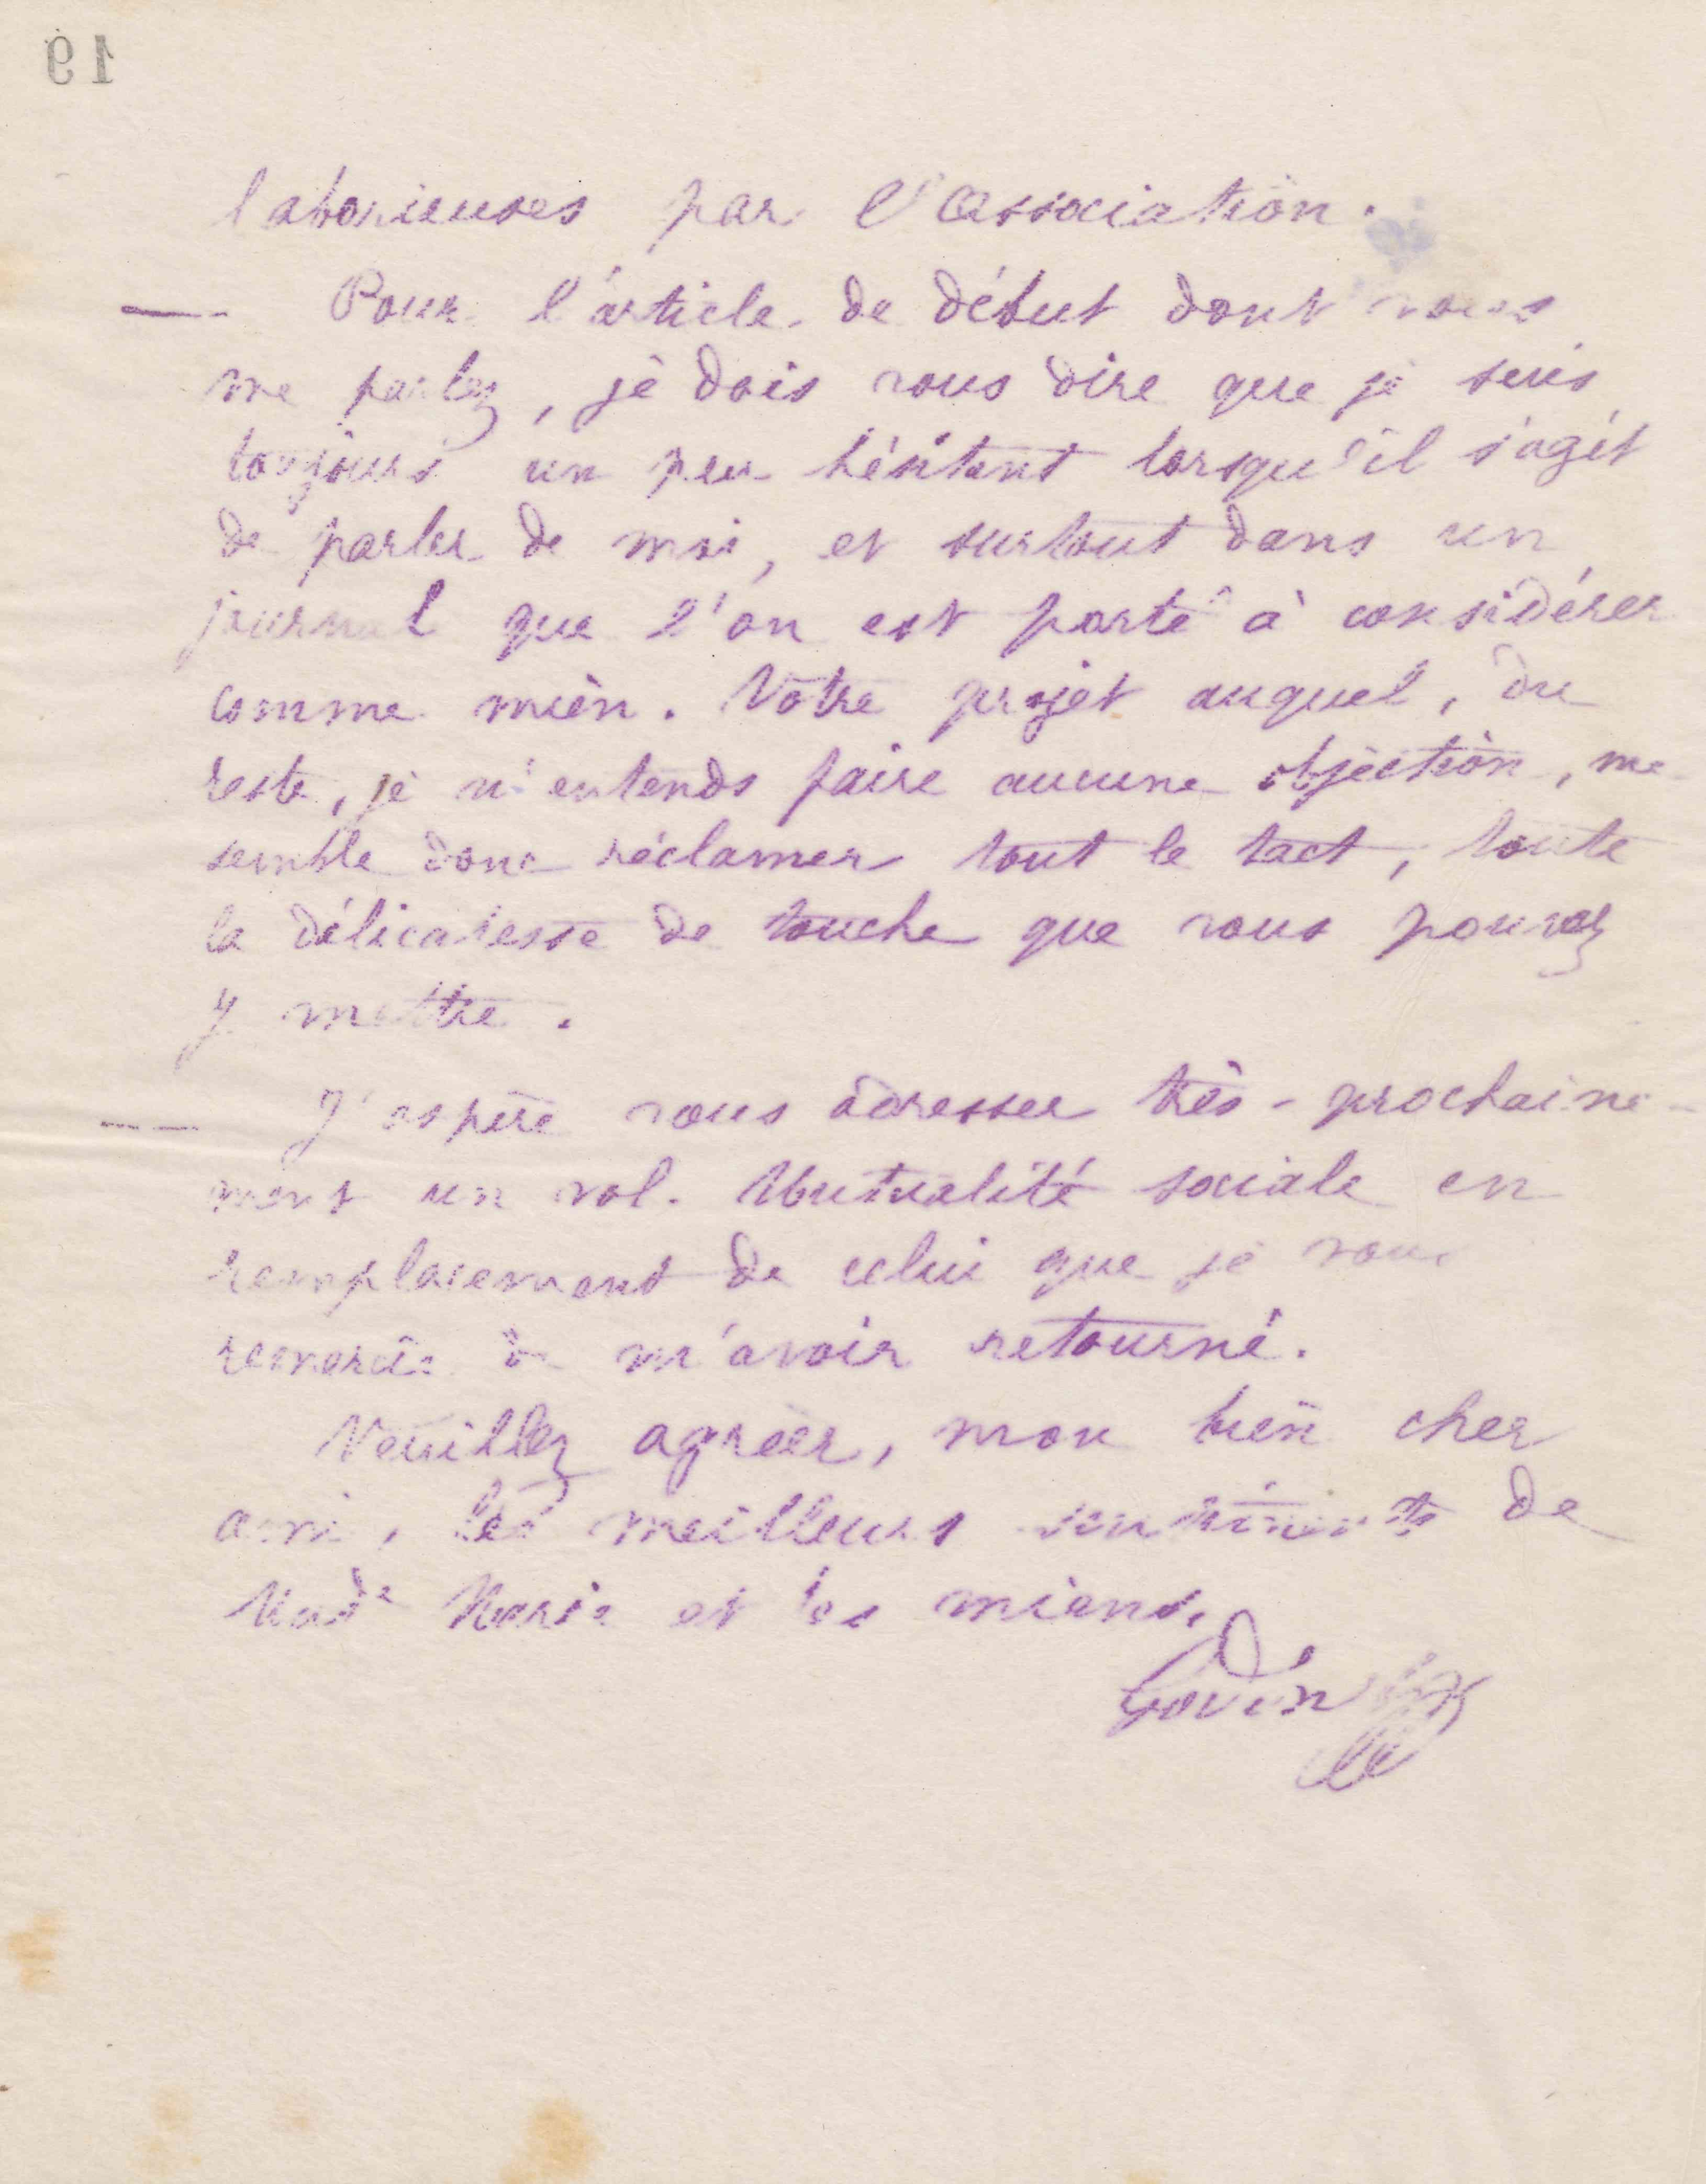 19
laborieuses par l'association.
— Pour l'article de début dont vous
me parlez, je dois vous dire que je suis
toujours un peu hésitant lorsqu'il s'agit
de parler de moi, et surtout dans un
journal que l'on est porté à considérer
comme mien. Votre projet auquel, du
reste, je n'entends faire aucune objection, me
semble donc réclamer tout le tact, toute
la délicatesse de touche que vous pouvez
y mettre.
— J'espère vous adresser très-prochaine-
ment un vol. Mutualité sociale en
remplacement de celui que je vous
remercie de m'avoir retourné.
Veuillez agréer, mon bien cher
ami, les meilleurs sentiments de
Made Marie et les miens.
Godin